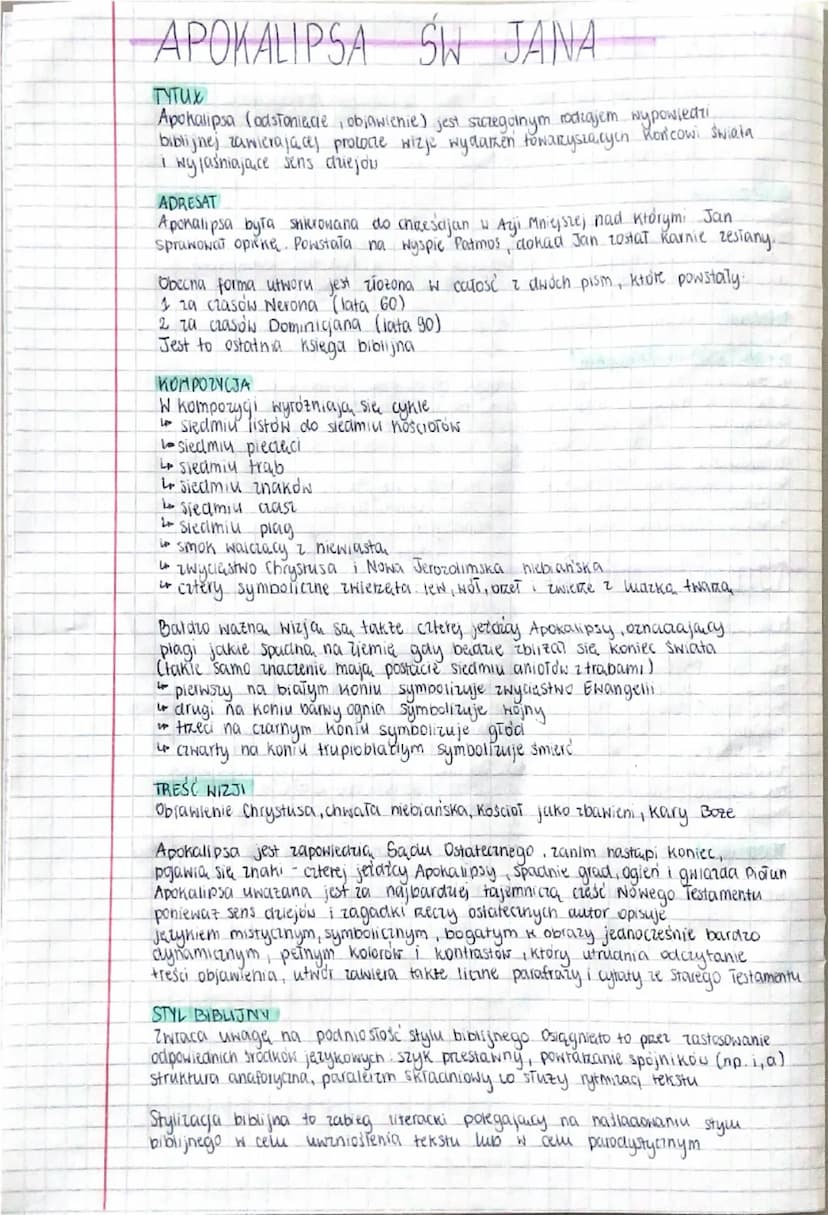 APOKALIPSA ŚW JANA
TYTUŁ
Apokalipsa (odsłonięcie, objawienie) jest szczególnym rodzajem wypowiedzi
biblijnej zawierającej prorocze wizje wydarzeń towarzyszących końcowi świata
i wyjaśniające sens dziejów
ADRESAT
Apokalipsa była skierowana do chrześcijan w Azji Mniejszej nad którymi Jan
sprawował opiekę. Powstała na wyspie Patmos, dokąd Jan został karnie zesłany.
Obecna forma utworu jest złożona w całość z dwóch pism, które powstały:
1 za czasów Nerona (lata 60)
2 za czasów Dominicjana (lata 90)
Jest to ostatnia księga biblijna
KOMPOZYCJA
W kompozycji wyróżniają się cykle
↳ siedmiu listów do siedmiu kościołów
↳ siedmiu pieczęci
↳ siedmiu trąb
↳ siedmiu znaków
↳ siedmiu czasz
↳ siedmiu plag
↳ smok walczący z niewiastą
↳ zwycięstwo Chrystusa i Nowa Jerozolimska niebiańska
↳ cztery symboliczne zwierzęta: lew, wół, orzeł i zwierzę z ludzką twarzą
Bardzo ważną wizją są także czterej jeźdźcy Apokalipsy, oznaczający
plagi jakie spadną na ziemię gdy będzie zbliżał się koniec świata
(takie samo znaczenie mają postacie siedmiu aniołów z trąbami)
↳ pierwszy na białym koniu symbolizuje zwycięstwo Ewangelii
↳ drugi na koniu barwy ognia symbolizuje wojny
↳ trzeci na czarnym koniu symbolizuje głód
↳ czwarty na koniu trupiobladym symbolizuje śmierć
TREŚĆ WIZJI
Objawienie Chrystusa, chwała niebiańska, Kościół jako zbawieni, Kary Boże
Apokalipsa jest zapowiedzią Sądu Ostatecznego, zanim nastąpi koniec,
pojawią się znaki - czterej jeźdźcy Apokalipsy, spadnie grad, ogień i gwiazda Piołun
Apokalipsa uważana jest za najbardziej tajemniczą część Nowego Testamentu
ponieważ sens dziejów i zagadki rzeczy ostatecznych autor opisuje
językiem mistycznym, symbolicznym, bogatym w obrazy jednocześnie bardzo
dynamicznym, pełnym kolorów i kontrastów, który utrudnia odczytanie
treści objawienia, utwór zawiera także liczne parafrazy i cytaty ze Starego Testamentu
STYL BIBLIJNY
Zwraca uwagę na podniosłość stylu biblijnego. Osiągnięto to przez zastosowanie
odpowiednich środków językowych: szyk przestawny, powtarzanie spójników (np. i, a)
struktura anaforyczna, paralelizm składniowy co służy rytmizacji tekstu
Stylizacja biblijna to zabieg literacki polegający na naśladowaniu stylu
biblijnego w celu uwznioślenia tekstu lub w celu parodystycznym